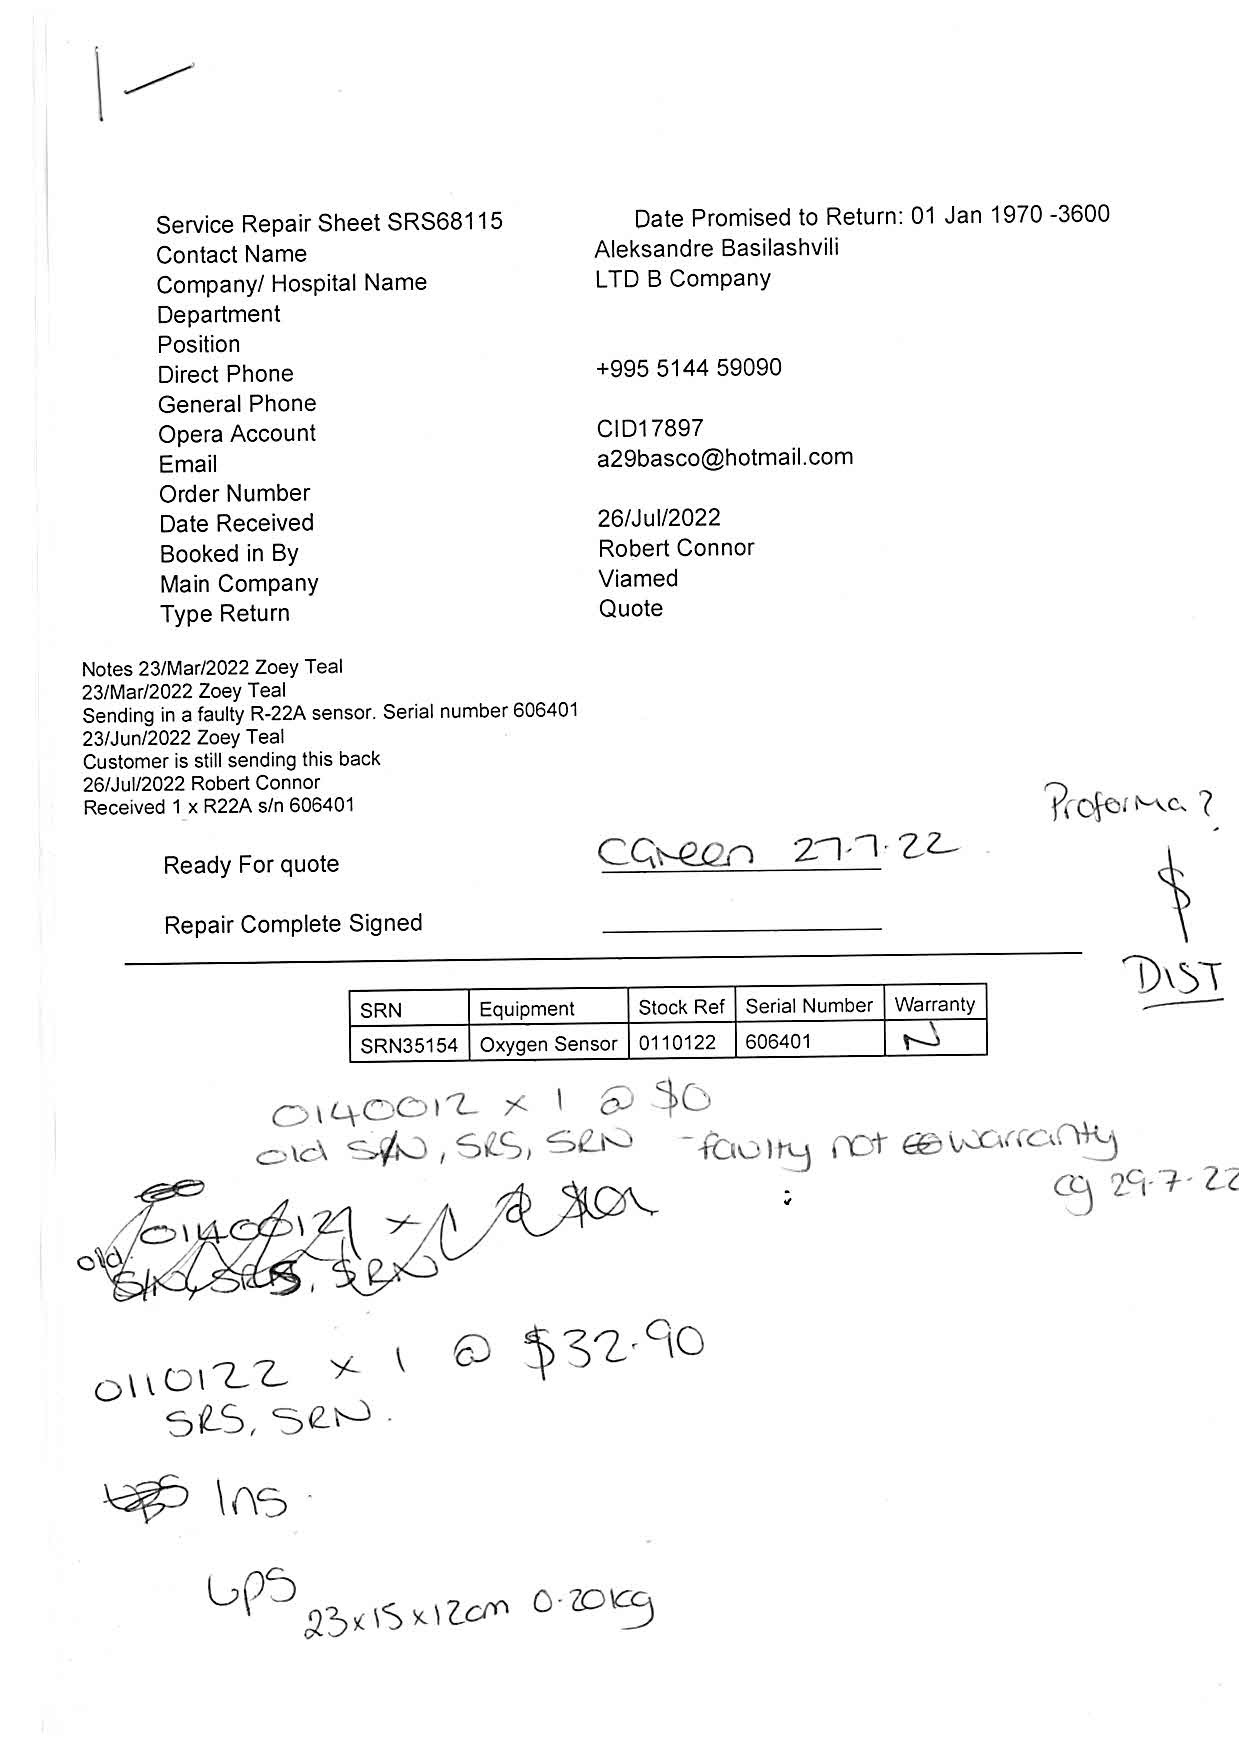 Service Repair Sheet SRS68115 Date Promised to Return: 01 Jan 1970 -3600
Contact Name Aleksandre Basilashvili
Company/ Hospital Name LTD B Company
Department
Position
Direct Phone +995 5144 59090
General Phone
Opera Account CID17897
Email a29basco@hotmail.com
Order Number
Date Received 26/Jul/2022
Booked in By Robert Connor
Main Company Viamed
Type Return Quote
Notes 23/Mar/2022 Zoey Teal
23/Mar/2022 Zoey Teal
Sending in a faulty R-22A sensor. Serial number 606401
23/Jun/2022 Zoey Teal
Customer is still sending this back
26/Jul/2022 Robert Connor
Received 1 x R22A s/n 606401
Proforma?
Ready For quote CGreen 27.7.22
$
Repair Complete Signed
DIST
SRN Equipment Stock Ref Serial Number Warranty
SRN35154 Oxygen Sensor 0110122 606401 N
0140012 x 1 @ $0
old S/N, SRS, SRN - faulty not warranty
cg 29.7.22
old
S/N, SRS, SRN
0110122 x 1 @ $32.90
SRS, SRN.
Ins
UPS
23x15x12cm 0.20kg